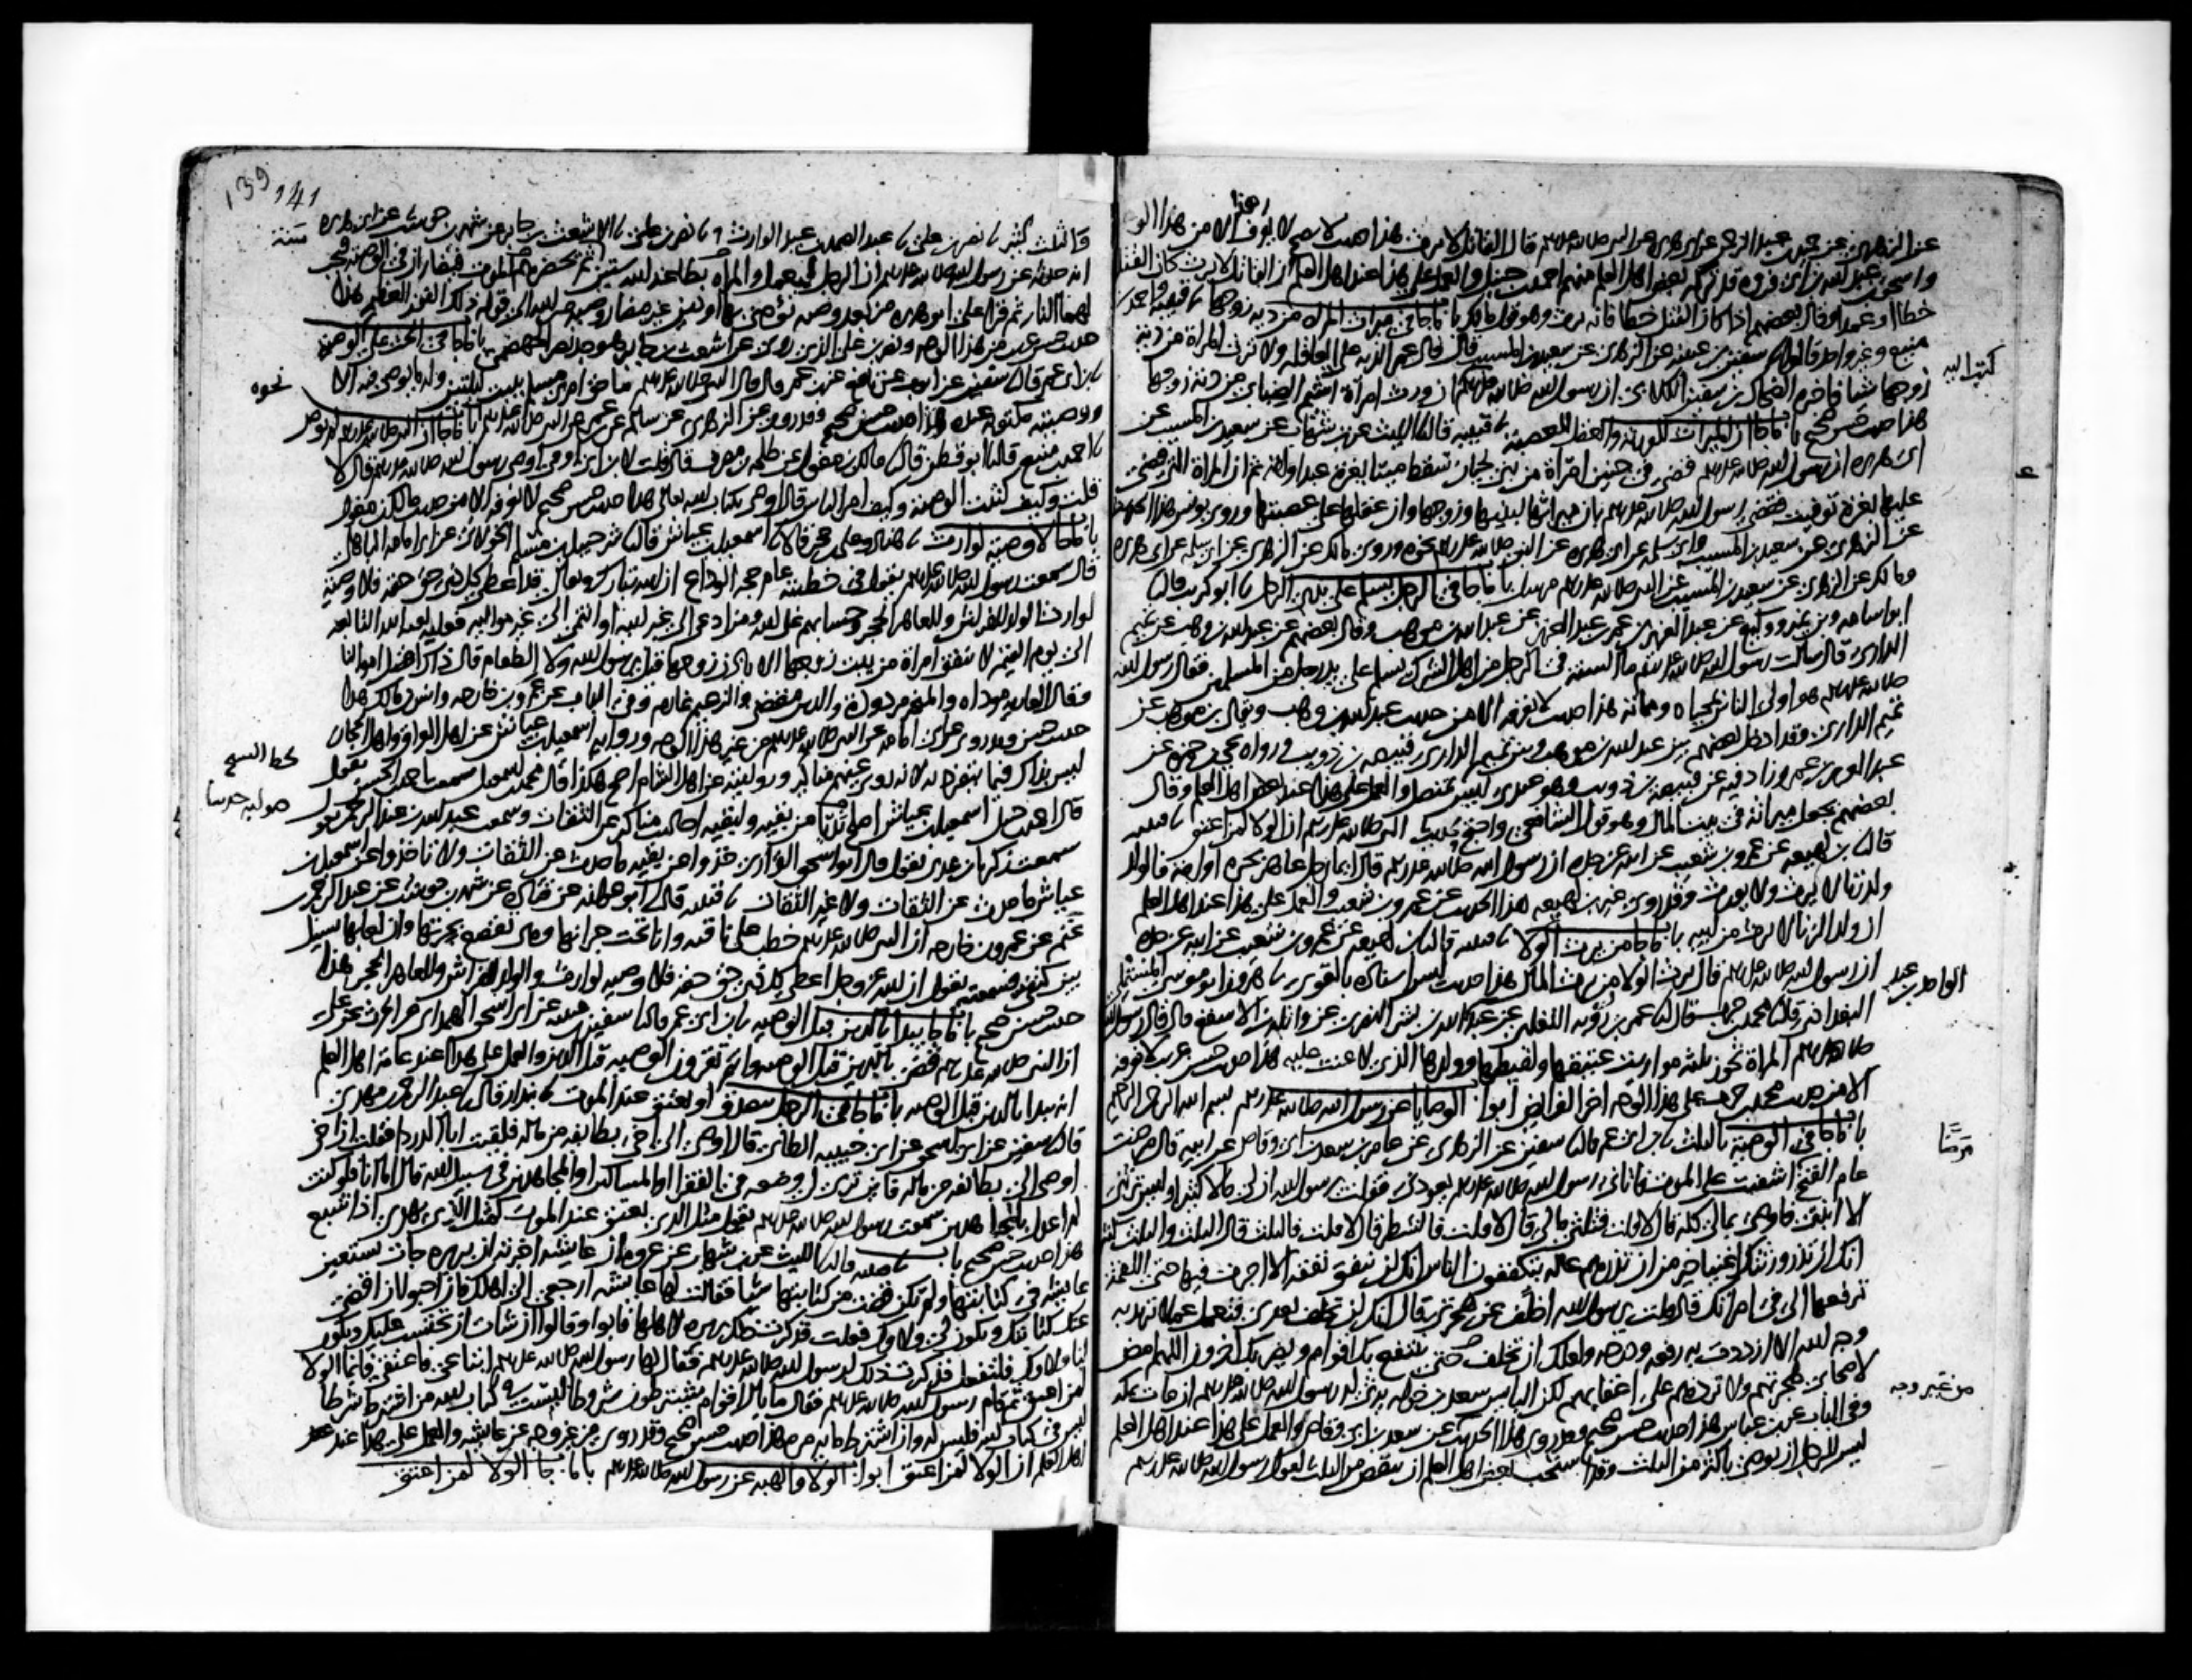 عن الزهري عن حميد بن عبد الرحمن عن ابي هريرة عن النبي صلى الله عليه وسلم قال القاتل لا يرث هذا حديث لا يصح لا يعرف هذا الا من هذا الوجه
واسحق بن عبد الله بن ابي فروة قد تركه بعض اهل العلم منهم احمد بن حنبل والعمل على هذا عند اهل العلم ان القاتل لا يرث كان القتل
خطأ او عمدا وقال بعضهم اذا كان القتل خطأ فانه يرث وهو قول مالك باب ما جا في ميراث المراه من دية زوجها قتيبة واحمد بن
منيع وغير واحد قالوا سفين بن عيينه عن الزهري عن سعيد بن المسيب قال قال عمر الدية على العاقله ولا ترث المراة من دية
زوجها شيا فاخبره الضحاك بن سفين الكلابي ان رسول الله صلى الله عليه وسلم ان ورث امراة اشيم الضبابي من دية زوجها
هذا حديث حسن صحيح باب ما جا ان الميراث للورثة والعقل للعصبة قتيبة قال الليث عن ابن شهاب عن سعيد بن المسيب عن
ابي هريرة ان رسول الله صلى الله عليه وسلم قضى في جنين امرأة من بني لحيان سقط ميتا بغرة عبد او امة ثم ان المراة التي قضي
عليها بغرة توفيت فقضى رسول الله صلى الله عليه وسلم بان ميراثها لبنيها وزوجها وان عقلها على عصبتها وروى يونس هذا الحديث
عن الزهري عن سعيد بن المسيب وابي سلمه عن ابي هريرة عن النبي صلى الله عليه وسلم نحوه وروى مالك عن الزهري عن ابي سلمه عن ابي هريرة
ومالك عن الزهري عن سعيد بن المسيب عن النبي صلى الله عليه وسلم مرسل باب ما جا في الرجل يسلم على يدي الرجل ابو كريب قال
ابو اسامه وابن نمير ووكيع عن عبد العزيز بن عمر بن عبد العزيز عن عبد الله بن موهب وقال بعضهم عن عبد الله بن وهب عن تميم
الداري قال سالت رسول الله صلى الله عليه وسلم ما السنة في الرجل من اهل الشرك يسلم على يدي رجل من المسلمين فقال رسول الله
صلى الله عليه وسلم هو اولى الناس بمحياه ومماته هذا حديث لا نعرفه الا من حديث عبد الله بن وهب ويقال بن موهب عن
تميم الداري وقد ادخل بعضهم بين عبد الله بن موهب وبين تميم الداري قبيصة بن ذويب ورواه يحيى بن حمزة عن
عبد العزيز بن عمر وزاد فيه عن قبيصة بن ذويب وهو عندي ليس بمتصل والعمل على هذا عند بعض اهل العلم وقال
بعضهم يجعل ميراثه في بيت المال وهو قول الشافعي واحتج بحديث النبي صلى الله عليه وسلم ان الولا لمن اعتق قتيبة
قال ابن لهيعه عن عمرو بن شعيب عن ابيه عن جده ان رسول الله صلى الله عليه وسلم قال ايما رجل عاهر بحرة او امة فالولد
ولد زنا لا يرث ولا يورث وقد روى غير ابن لهيعه هذا الحديث عن عمرو بن شعيب والعمل على هذا عند اهل العلم
ان ولد الزنا لا يرث من ابيه باب ما جا من يرث الولا قتيبه قال ابن لهيعة عن عمرو بن شعيب عن ابيه عن جده
ان رسول الله صلى الله عليه وسلم قال يرث الولا من يرث المال هذا حديث ليس اسناده بالقوي هرون ابو موسى المستملي
البغدادي قال محمد بن حرب قال عمر بن روبة التغلبي عن عبد الواحد بن عبد الله بن بسر النصري عن واثلة بن الاسقع قال قال رسول الله
صلى الله عليه وسلم المراة تحوز ثلثة مواريث عتيقها ولقيطها وولدها الذي لاعنت عليه هذا حديث حسن غريب لا نعرفه
الا من حديث محمد بن حرب على هذا الوجه اخر الفرائض ابواب الوصايا عن رسول الله صلى الله عليه وسلم بسم الله الرحمن الرحيم
باب ما جا في الوصية بالثلث ابن ابي عمر قال سفين عن الزهري عن عامر بن سعد بن ابي وقاص عن ابيه قال مرضت
عام الفتح اشفيت على الموت فاتاني رسول الله صلى الله عليه وسلم يعودني فقلت يرسول الله ان لي مالا كثيرا وليس يرثني
الا ابنتي فاوصي بمالي كله قال لا قلت فثلثي مالي قال لا قلت فالشطر قال لا قلت فالثلث قال الثلث والثلث كثير
انك ان تذر ورثتك اغنيا خير من ان تذرهم عاله يتكففون الناس انك لن تنفق نفقه الا اجرت فيها حتى اللقمة
ترفعها الى في امراتك قال قلت يرسول الله اخلف عن هجرتي قال انك لن تخلف بعدي فتعمل عملا تريد به
وجه الله الا ازددت به رفعه ودرجه ولعلك ان تخلف حتى ينتفع بك اقوام ويضر بك اخرون اللهم امض
لاصحابي هجرتهم ولا تردهم على اعقابهم لكن البائس سعد بن خوله يرثي له رسول الله صلى الله عليه وسلم ان مات بمكة
وفي الباب عن ابن عباس هذا حديث حسن صحيح وقد روي هذا الحديث عن سعد بن ابي وقاص والعمل على هذا عند اهل العلم
ليس للرجل ان يوصي باكثر من الثلث وقد استحب بعض اهل العلم ان ينقص من الثلث لقول رسول الله صلى الله عليه وسلم
عبد الواحد بن
مرضا
من غير وجه
139 141
والثلث كثير نصر بن علي عبد الصمد بن عبد الوارث نصر بن علي الاشعث بن جابر عن شهر بن حوشب عن ابي هريرة
انه حدثه عن رسول الله صلى الله عليه وسلم ان الرجل ليعمل والمراة بطاعة الله ستين ثم يحضرهم الموت فيضاران في الوصية فتجب
لهما النار ثم قرا علي ابو هريره من بعد وصيه يوصى بها او دين غير مضار وصية من الله الى قوله ذلك الفوز العظيم هذا
حديث حسن غريب من هذا الوجه ونصر بن علي الذي روى عن اشعث بن جابر هو جد نصر الجهضمي باب ما جا في الحث على الوصية
ابن ابي عمر قال سفين عن ايوب عن نافع عن ابن عمر قال قال النبي صلى الله عليه وسلم ما حق امرئ مسلم يبيت ليلتين وله ما يوصي فيه الا
ووصيته مكتوبة عنده هذا حديث حسن صحيح وقد روي عن الزهري عن سالم عن ابن عمر عن النبي صلى الله عليه وسلم باب ما جا ان النبي صلى الله عليه وسلم لم يوص
احمد بن منيع قال ابو قطن قال مالك بن مغول عن طلحه بن مصرف قال قلت لابن ابي اوفى اوصى رسول الله صلى الله عليه وسلم قال لا
قلت وكيف كتبت الوصية وكيف امر الناس قال اوصى بكتاب الله تعالى هذا حديث حسن صحيح لا نعرفه الا من حديث مالك بن مغول
باب ما جا لا وصية لوارث هناد وعلي بن حجر قالا اسمعيل بن عياش قال شرحبيل بن مسلم الخولاني عن ابي امامة الباهلي
قال سمعت رسول الله صلى الله عليه وسلم يقول في خطبته عام حجة الوداع ان الله تبارك وتعالى قد اعطى كل ذي حق حقه فلا وصية
لوارث الولد للفراش وللعاهر الحجر وحسابهم على الله ومن ادعى الى غير ابيه او انتمى الى غير مواليه فعليه لعنة الله التابعة
الى يوم القيمة لا تنفق امراة من بيت زوجها الا باذن زوجها قيل يرسول الله ولا الطعام قال ذاك افضل اموالنا
وقال العارية موداه والمنحة مردودة والدين مقضي والزعيم غارم وفي الباب عن عمرو بن خارجه وانس بن مالك هذا
حديث حسن وقد روي عن ابي امامه عن النبي صلى الله عليه وسلم من غير هذا الوجه ورواية اسمعيل بن عياش عن اهل العراق واهل الحجاز
ليس بذاك فيما ينفرد به لانه روى عنهم مناكير وروايته عن اهل الشام اصح هكذا قال محمد بن اسمعيل سمعت احمد بن الحسن يقول
قال احمد بن حنبل اسمعيل بن عياش اصلح بدنا من بقيه ولبقيه احاديث مناكير عن الثقات وسمعت عبد الله بن عبد الرحمن يقول
سمعت زكريا بن عدي يقول قال ابو اسحق الفزاري خذوا عن بقيه ما حدث عن الثقات ولا تاخذوا عن اسمعيل بن
عياش ما حدث عن الثقات ولا غير الثقات قتيبة قال ابو عوانه عن قتاده عن شهر بن حوشب عن عبد الرحمن بن
غنم عن عمرو بن خارجه ان النبي صلى الله عليه وسلم خطب على ناقته وانا تحت جرانها وهي تقصع بجرتها وان لعابها يسيل
بين كتفي فسمعته يقول ان الله عز وجل اعطى كل ذي حق حقه فلا وصيه لوارث والولد للفراش وللعاهر الحجر هذا
حديث حسن صحيح باب ما جا يبدا بالدين قبل الوصيه ابن ابي عمر قال سفين بن عيينه عن ابي اسحق الهمداني عن الحرث عن علي
ان النبي صلى الله عليه وسلم قضى بالدين قبل الوصيه وانتم تقرون الوصيه قبل الدين والعمل على هذا عند عامة اهل العلم
انه يبدا بالدين قبل الوصيه باب ما جا في الرجل يتصدق او يعتق عند الموت بندار قال عبد الرحمن بن مهدي
قال سفين عن ابي اسحق عن ابي حبيبه الطائي قال اوصى الي اخي بطائفه من ماله فلقيت ابا الدردا فقلت ان اخي
اوصى الي بطائفه من ماله فاين ترى لي وضعه في الفقرا او المساكين او المجاهدين في سبيل الله قال اما انا فلو كنت
لم اعدل بالمجاهدين سمعت رسول الله صلى الله عليه وسلم يقول مثل الذي يعتق عند الموت كمثل الذي يهدي اذا شبع
هذا حديث حسن صحيح باب قتيبه قال الليث عن ابن شهاب عن عروة ان عايشه اخبرته ان بريره جات تستعين
عايشه في كتابتها ولم تكن قضت من كتابتها شيا فقالت لها عايشه ارجعي الى اهلك فان احبوا ان اقضي
عنك كتابتك ويكون لي ولاوك فعلت فذكرت ذلك بريره لاهلها فابوا وقالوا ان شات ان تحتسب عليك ويكون
لنا ولاوك فلتفعل فذكرت ذلك لرسول الله صلى الله عليه وسلم فقال لها رسول الله صلى الله عليه وسلم ابتاعي فاعتقي فانما الولا
لمن اعتق ثم قام رسول الله صلى الله عليه وسلم فقال ما بال اقوام يشترطون شروطا ليست في كتاب الله من اشترط شرطا
ليس في كتاب الله فليس له وان اشترط مايه مره هذا حديث حسن صحيح وقد روي من غير وجه عن عايشه والعمل على هذا عند
اهل العلم ان الولا لمن اعتق ابواب الولا والهبه عن رسول الله صلى الله عليه وسلم باب ما جا الولا لمن اعتق
سنة
نحوه